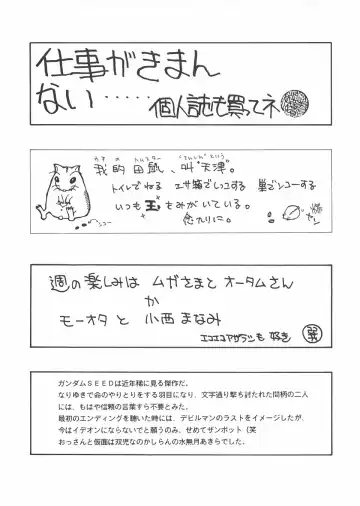 仕事がきまん
ない‥‥‥個人誌も買ってネ
我的田鼠、叫“天津”。
トイレでねる エサ箱でレユする 巣でシューする
いつも玉をもみがいている。
念入りに。
週の楽しみは ムガさまと オータムさん
か
モーオタ と 小西 まなみ
エコエコアザラシも 好き
ガンダムＳＥＥＤは近年稀に見る傑作だ。
なりゆきで命のやりとりをする羽目になり、文字通り撃ち討たれた間柄の二人
には、もはや信頼の言葉すら不要とみた。
最初のエンディングを聴いた時には、デビルマンのラストをイメージしたが、
今はイデオンにならないでと願うのみ、せめてザンボット（笑
おっさんと仮面は双児なのかしらんの水無月あきらでした。